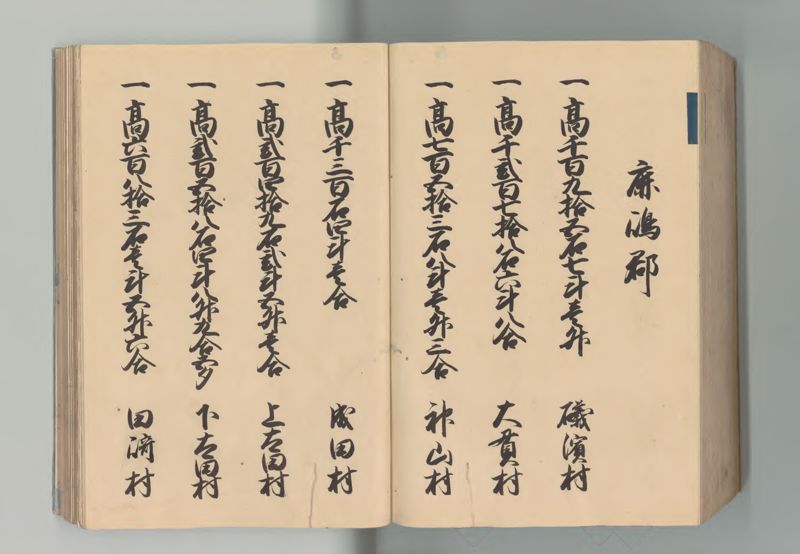 鹿嶋郡
一高千百九拾五石七斗壱升 磯濱村
一高千弐百七拾八石六斗八合 大貫村
一高七百五拾三石八斗壱升三合 神山村
一高千三百石四斗壱合 成田村
一高弐百四拾九石弐斗五升壱合 上太田村
一高弐百五拾八石四斗八升九合五夕 下太田村
一高六百八拾三石壱斗五升六合 田﨑村